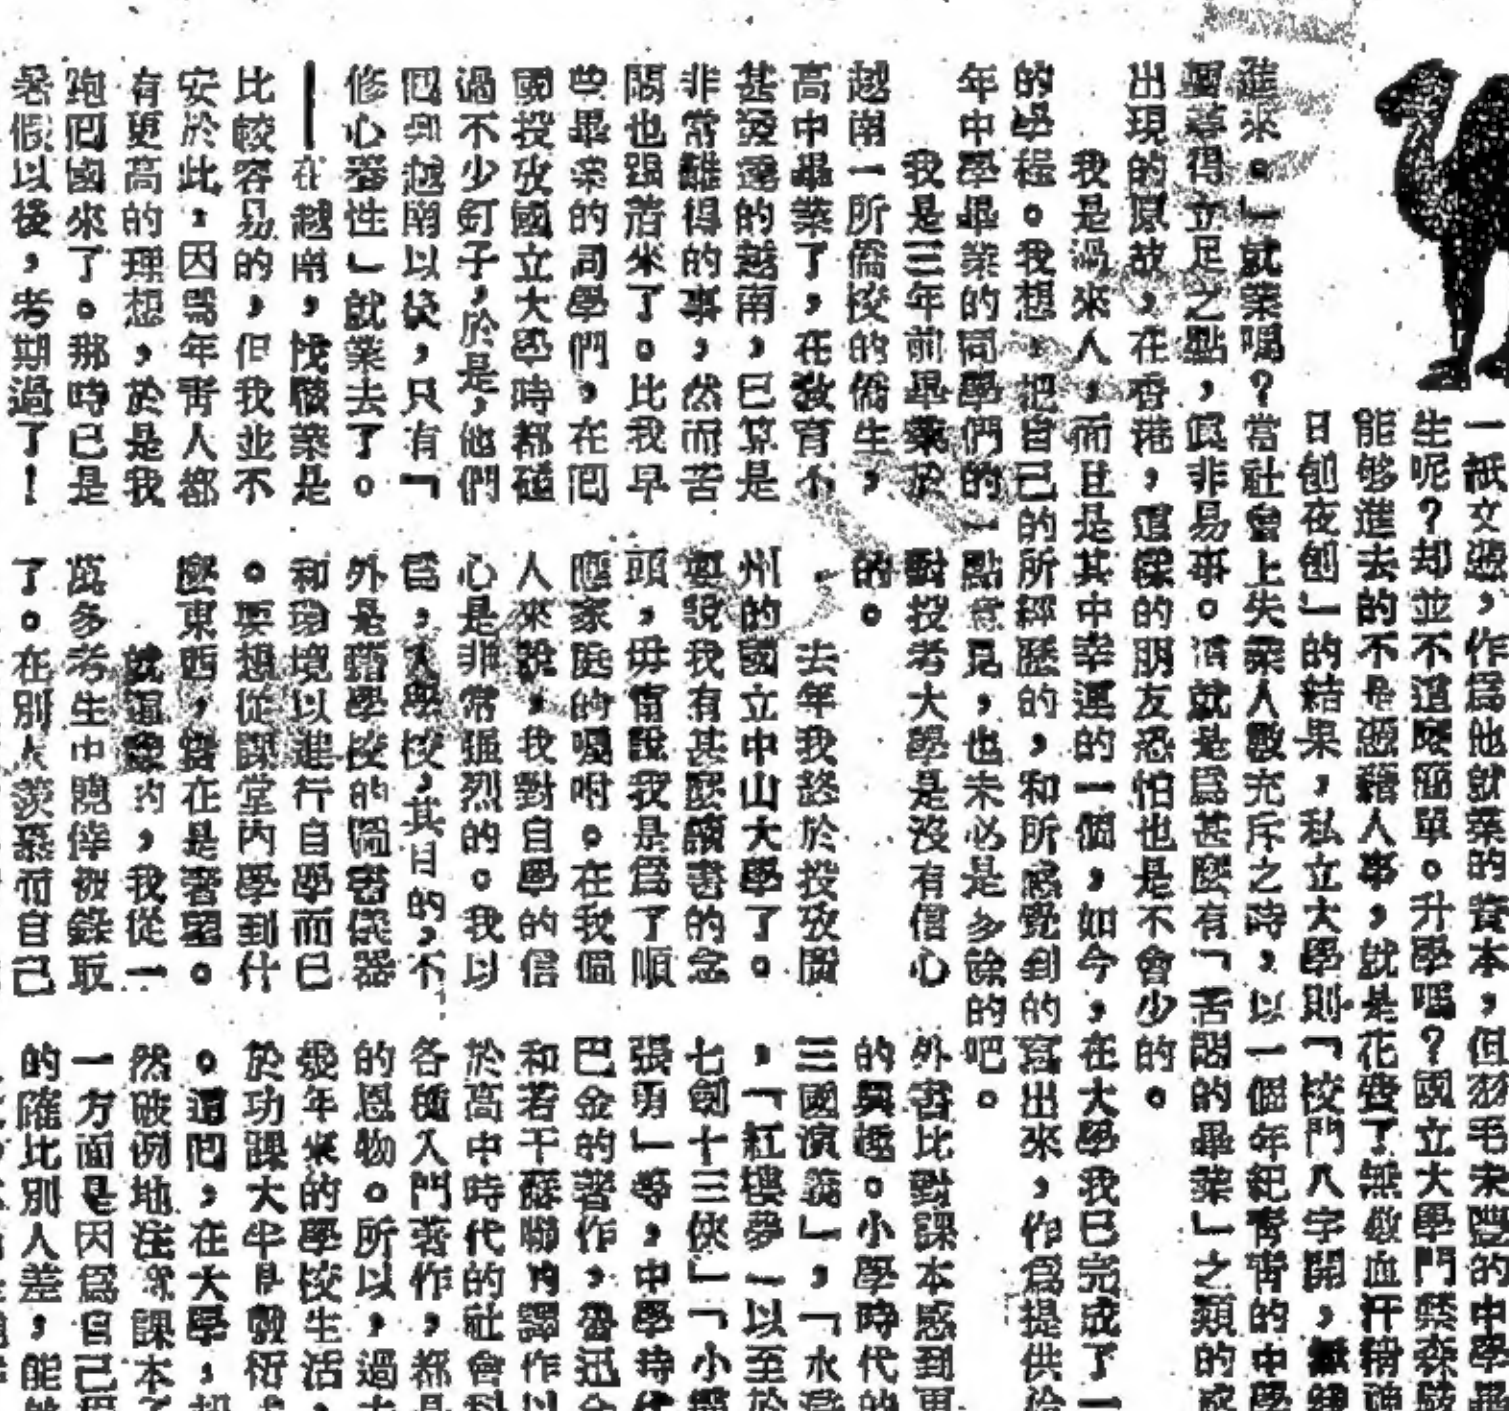 一紙文憑，作爲他就業的資本，但羽毛未豐的中學畢
生呢？却並不這麼簡單。升學嗎？國立大學門禁森嚴
能够進去的不是憑藉人事，就是花費了無數血汗精神
日刨夜刨」的結果，私立大學則「校門八字開，無錢
進來。」就業嗎？當社會上失業人數充斥之時，以一個年紀青青的中學
得立足之點，眞非易事。這就是爲甚麼有「苦悶的畢業」之類的感
出現的原故，在香港，這樣的朋友恐怕也是不會少的。
我是過來人，而且是其中幸運的一個，如今，在大學我已完成了一
的學程。我想，把自己的所經歷的，和所感覺到的寫出來，作爲提供給
年中學畢業的同學們的一點意見，也未必是多餘的吧。
我是三年前畢業於
越南一所僑校的僑生，
高中畢業了，在敎育不
甚發達的越南，已算是
非常難得的事，然而苦
悶也跟着來了。比我早
些畢業的同學們，在囘
國投攷國立大學時都碰
過不少釘子，於是，他們
囘到越南以後，只有「
修心養性」就業去了。
——在越南，找職業是
比較容易的，但我並不
安於此，因爲年靑人都
有更高的理想，於是我
跑囘國來了。那時已是
暑假以後，考期過了！
對投考大學是沒有信心
的。
去年我終於投攷廣
州的國立中山大學了。
要說我有甚麼讀書的念
頭，毋甯說我是爲了順
應家庭的囑咐。在我個
人來說，我對自學的信
心是非常强烈的。我以
爲，入學校，其目的，不
外是藉學校的圖書儀器
和環境以進行自學而已
。要想從課堂內學到什
麼東西，實在是奢望。
就這樣的，我從一
萬多考生中僥倖被錄取
了。在別人羨慕而自己
外書比對課本感到更
的興趣。小學時代的
三國演義」，「水滸
，「紅樓夢」以至於
七劍十三俠」「小
張勇」等，中學時代
巴金的著作，魯迅全
和若干蘇聯的譯作以
於高中時代的社會科
各種入門著作，都是
的恩物。所以，過去
幾年來的學校生活，
於功課大半是敷衍
。這囘，在大學，却
然破例地注意課本了
一方面是因爲自己程
的確比別人差，能